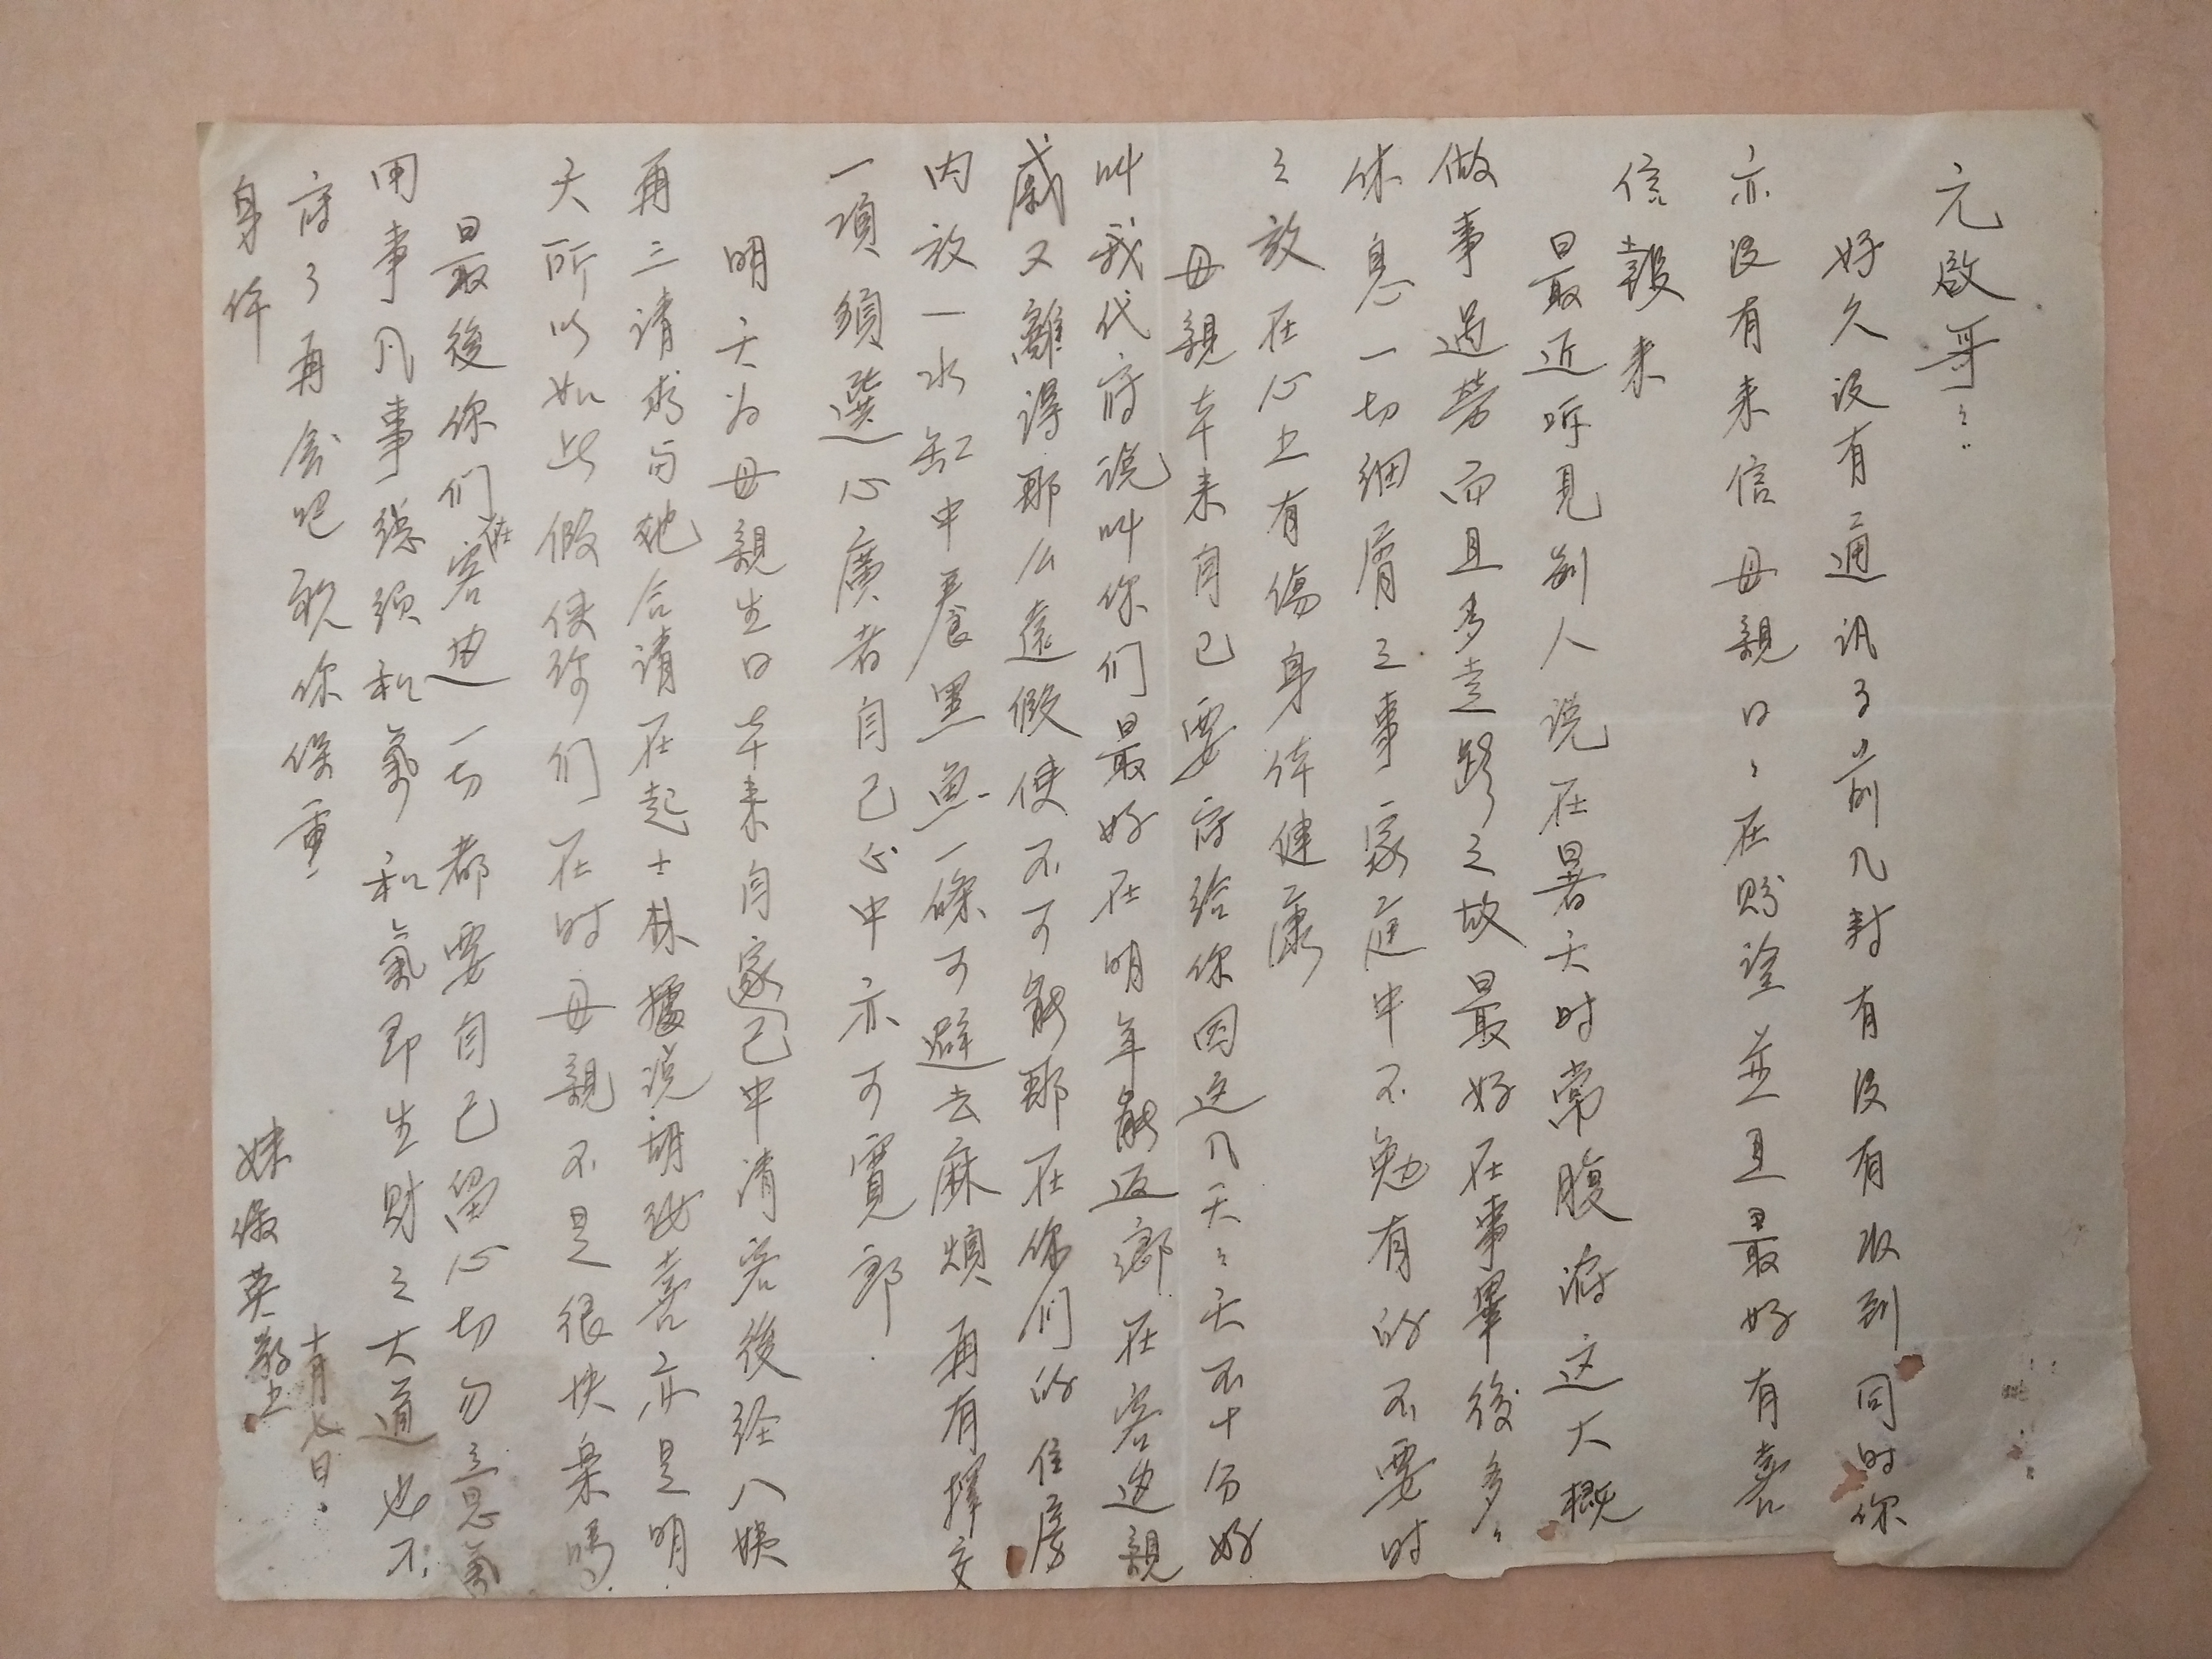 元啟哥々:
好久没有通讯了前几封有没有收到同时你
亦没有来信母親日々在盼望並且最好有喜
信報来
最近听見别人说在暑天时常腹泻这大概
做事過劳而且多走路之故最好在事畢後多々
休息一切细屑之事家庭中不勉有的不要时
々放在心上有傷身体健康
母親本来自已要寄给你因这几天々天不十分好
叫我代寄说叫你们最好在明年能返鄉在客边親
戚又離得那么遠假使不可能那在你们的住房
内放一水缸中養黑魚一條可避去麻煩再有擇交
一項須選心廣者自己心中亦可寬
明天为母親生日本来自家已中请客後经八姨
再三请求与她合请在起士林據说胡喜亦是明
天所以如此假使你们在时母親不是很快樂嗎
最後你们在客边一切都要自己留心切勿意氣
用事凡事總須和氣和氣即生财之大道也不
寄了再会吧祝你保重
身体
妹 英敬上
十月七日.